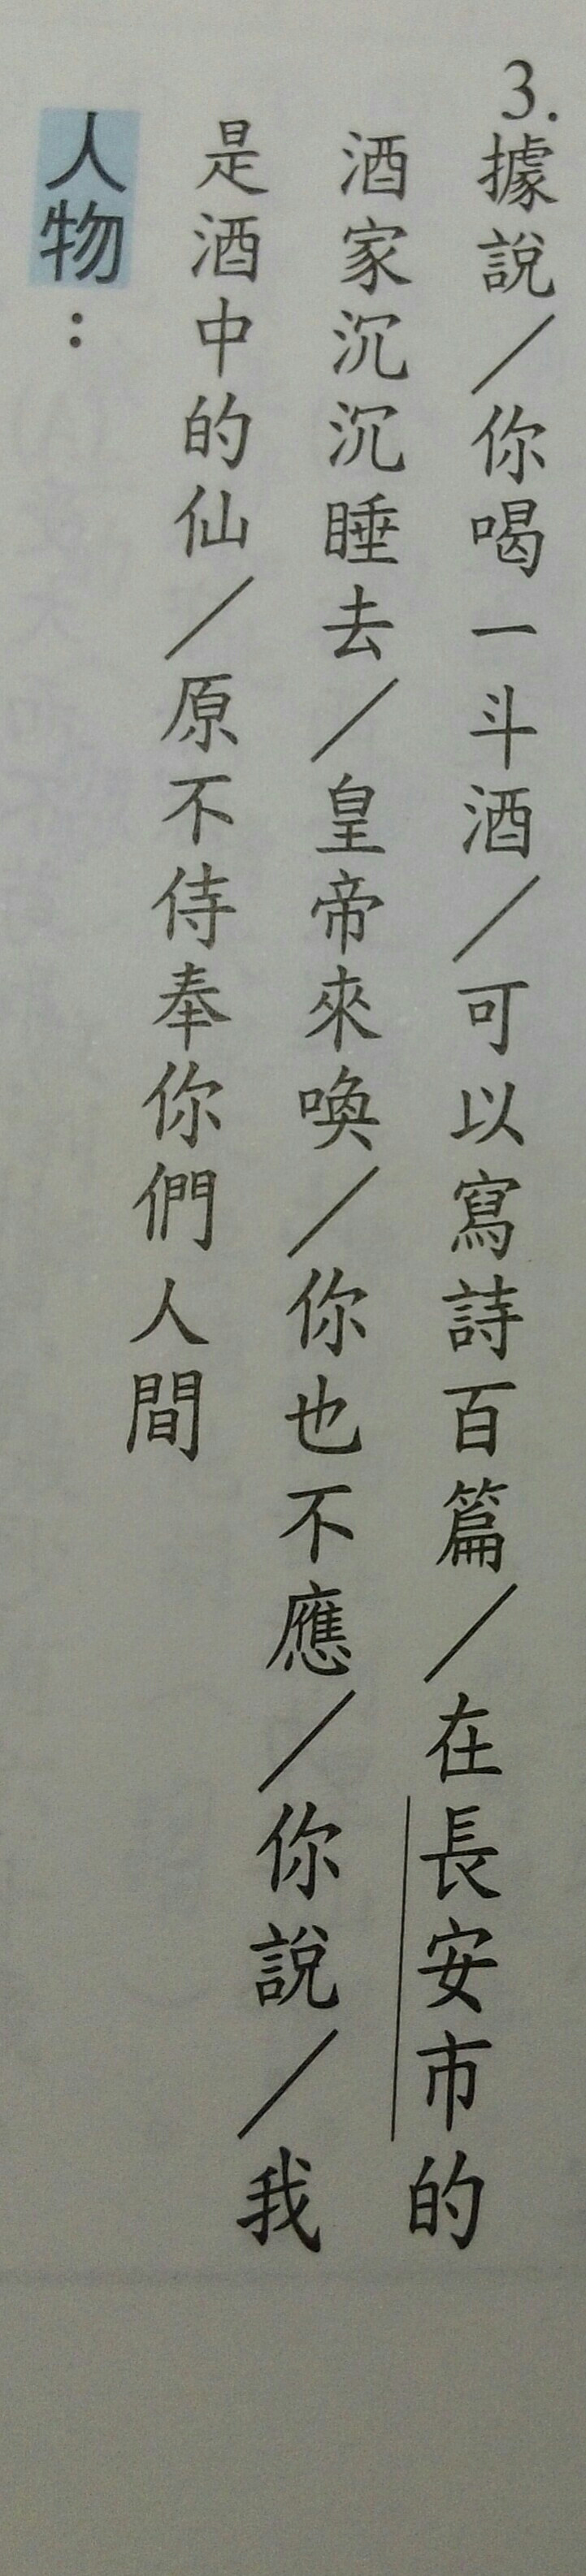 3.據說／你喝一斗酒／可以寫詩百篇／在長安市的
酒家沉沉睡去／皇帝來喚／你也不應／你說／我
是酒中的仙／原不侍奉你們人間
人物：